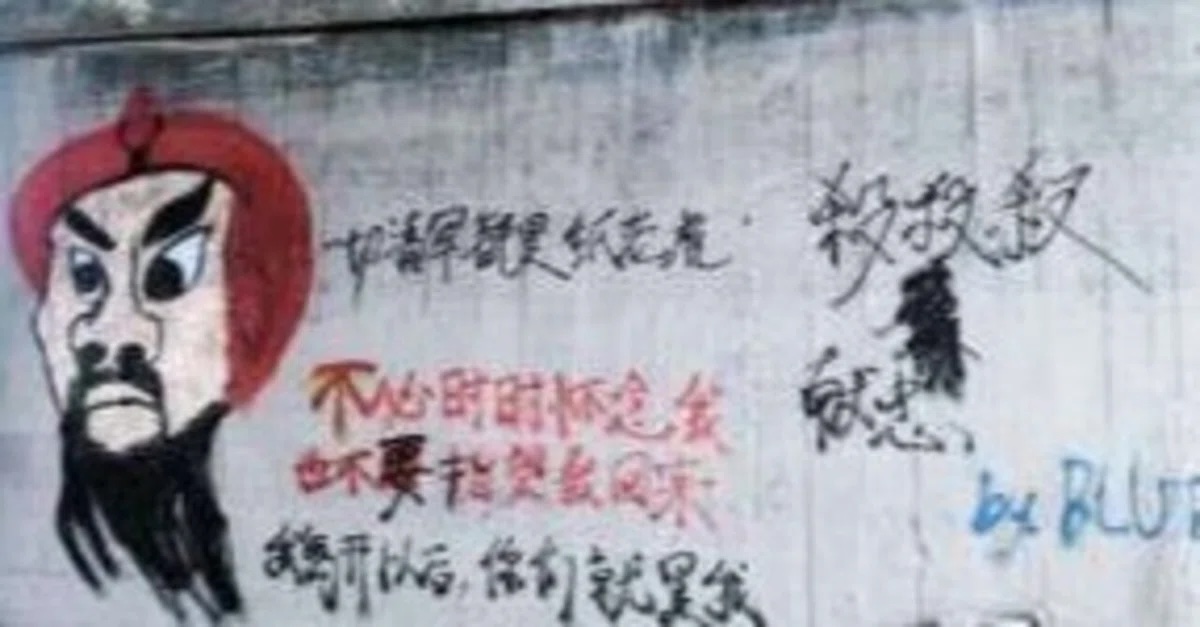 一切清军都是纸老虎.
殺殺殺
献忠
不必时时怀念我
也不要指望我回来
我离开以后,你们就是我
by BLU